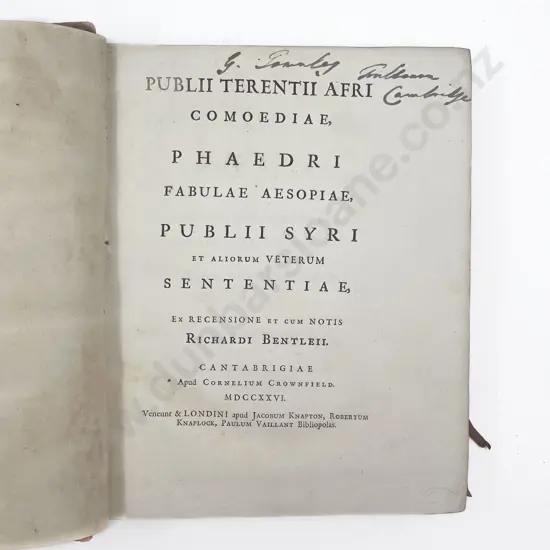 G.
Cambridge
PUBLII TERENTII AFRI
COMOEDIAE,
PHAEDRI
FABULAE AESOPIAE,
PUBLII SYRI
ET ALIORUM VETERUM
SENTENTIAE,
Ex RECENSIONE ET CUM NOTIS
RICHARDI BENTLEII.
CANTABRIGIAE
Apud CORNELIUM CROWNFIELD.
MDCCXXVI.
Veneunt & LONDINI apud JACOBUM KNAPTON, ROBERTUM
KNAPLOCK, PAULUM VAILLANT Bibliopolas.